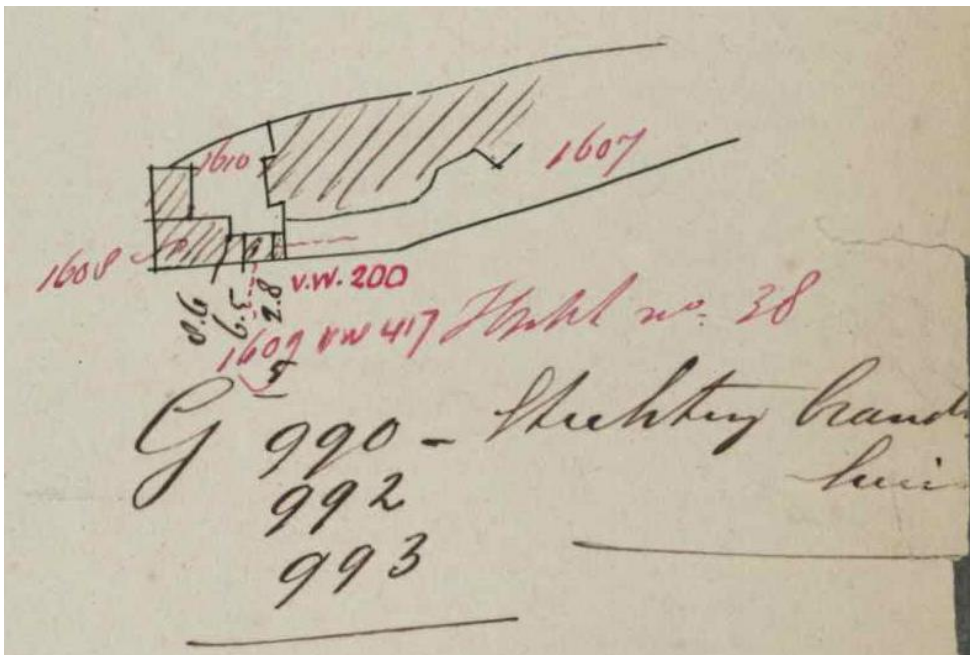 1610
1607
1608
V.W. 200
9.0
3.9
8.2
1609 VW 417 no. 38
5
G 990 - Stichting brand
992
993